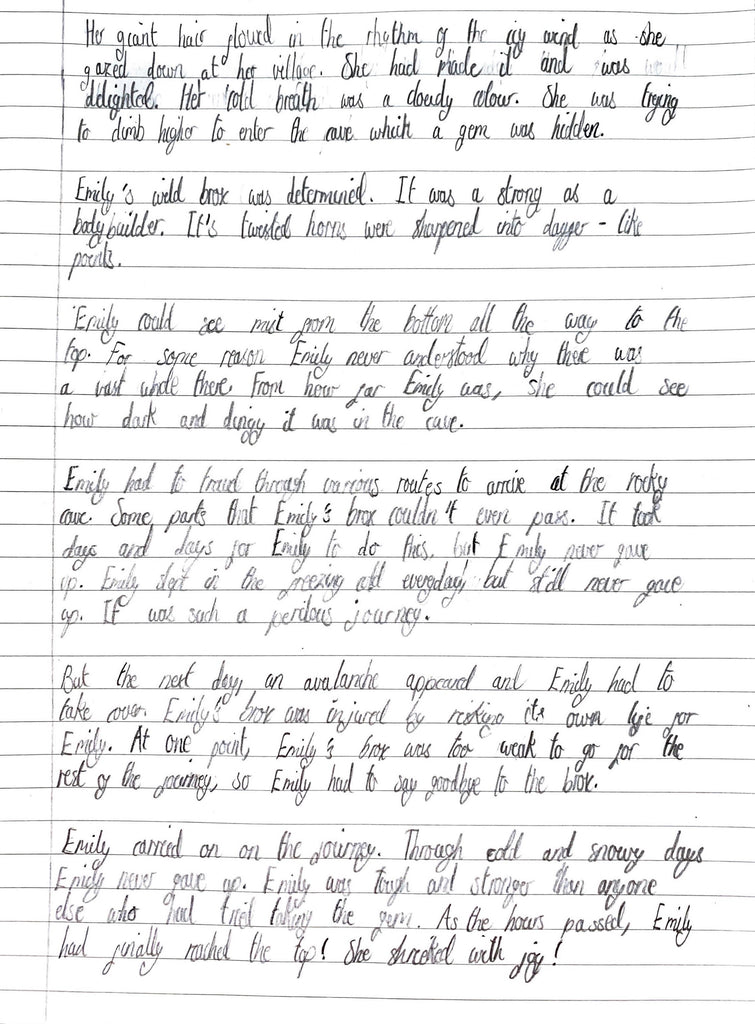 Her giant hair flowed in the rhythm of the icy wind as she
gazed down at her village. She had made it and was
delighted. Her cold breath was a cloudy colour. She was trying
to climb higher to enter the cave which a gem was hidden.
Emily's wild brox was determined. It was a strong as a
bodybuilder. It's twisted horns were sharpened into dagger - like
points.
Emily could see mist from the bottom all the way to the
top. For some reason Emily never understood why there was
a vast whole there. From how far Emily was, she could see
how dark and dingy it was in the cave.
Emily had to travel through various routes to arrive at the rocky
cave. Some parts that Emily's brox couldn't even pass. It took
days and days for Emily to do this, but Emily never gave
up. Emily slept in the freezing cold everyday, but still never gave
up. It was such a perilous journey.
But the next day, an avalanche appeared and Emily had to
take cover. Emily's brox was injured by risking its own life for
Emily. At one point, Emily's brox was too weak to go for the
rest of the journey, so Emily had to say goodbye to the brox.
Emily carried on on the journey. Through cold and snowy days
Emily never gave up. Emily was tough and stronger than anyone
else who had tried taking the gem. As the hours passed, Emily
had finally reached the top! She shreiked with joy!